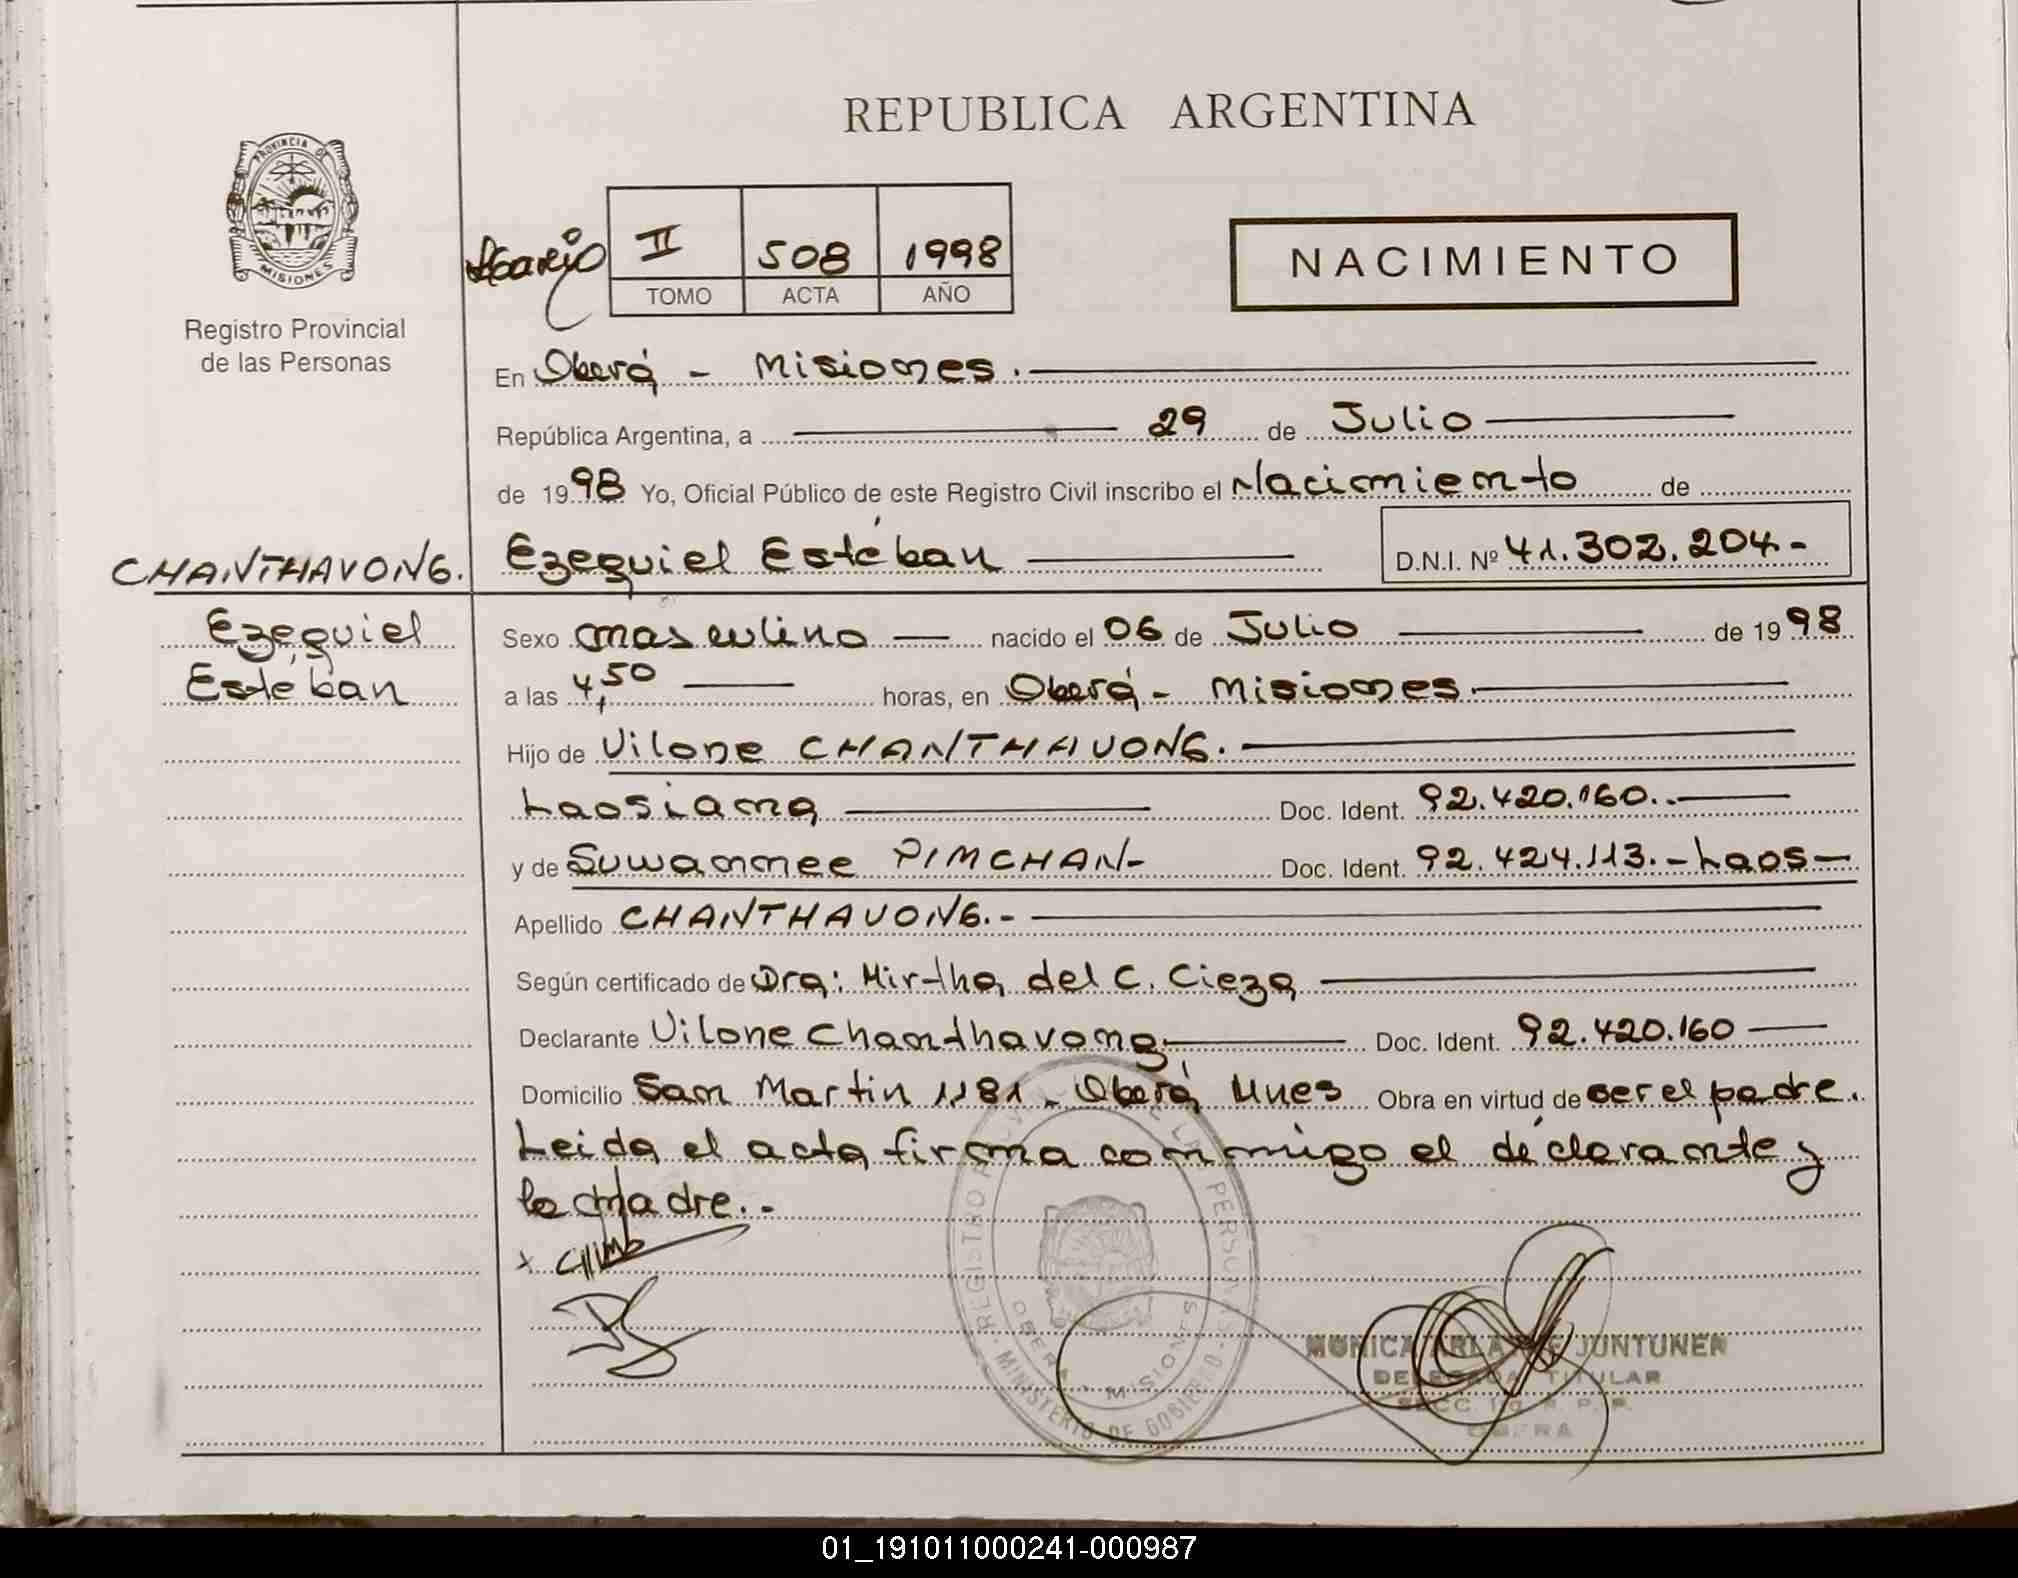 REPUBLICA ARGENTINA
PROVINCIA DE
MISIONES
Registro Provincial
de las Personas
II 508 1998
TOMO ACTA AÑO
NACIMIENTO
En Oberá - Misiones.
República Argentina, a 29 de Julio
de 1998 Yo, Oficial Público de este Registro Civil inscribo el Nacimiento de
CHANTHAVONG. Ezequiel Estéban D.N.I. Nº 41.302.204.-
Ezequiel
Estéban
Sexo masculino nacido el 06 de Julio de 1998
a las 4,50 horas, en Oberá - Misiones.
Hijo de Vilone CHANTHAVONG.
Laosiana Doc. Ident. 92.420.160..
y de Suwannee PIMCHAN- Doc. Ident. 92.424.113.-Laos-
Apellido CHANTHAVONG.-
Según certificado de Dra: Mirtha del C. Cieza
Declarante Vilone Chanthavong. Doc. Ident. 92.420.160
Domicilio San Martin 1181. Oberá Mnes Obra en virtud de ser el padre.
Leida el acta firma conmigo el declarante y
la madre.-
REGISTRO PERSONAS
OBERA MISIONES
MINISTERIO DE GOBIERNO
MONICA DE JUNTUNEN
DELEGADA TITULAR
OBERA
01_191011000241-000987